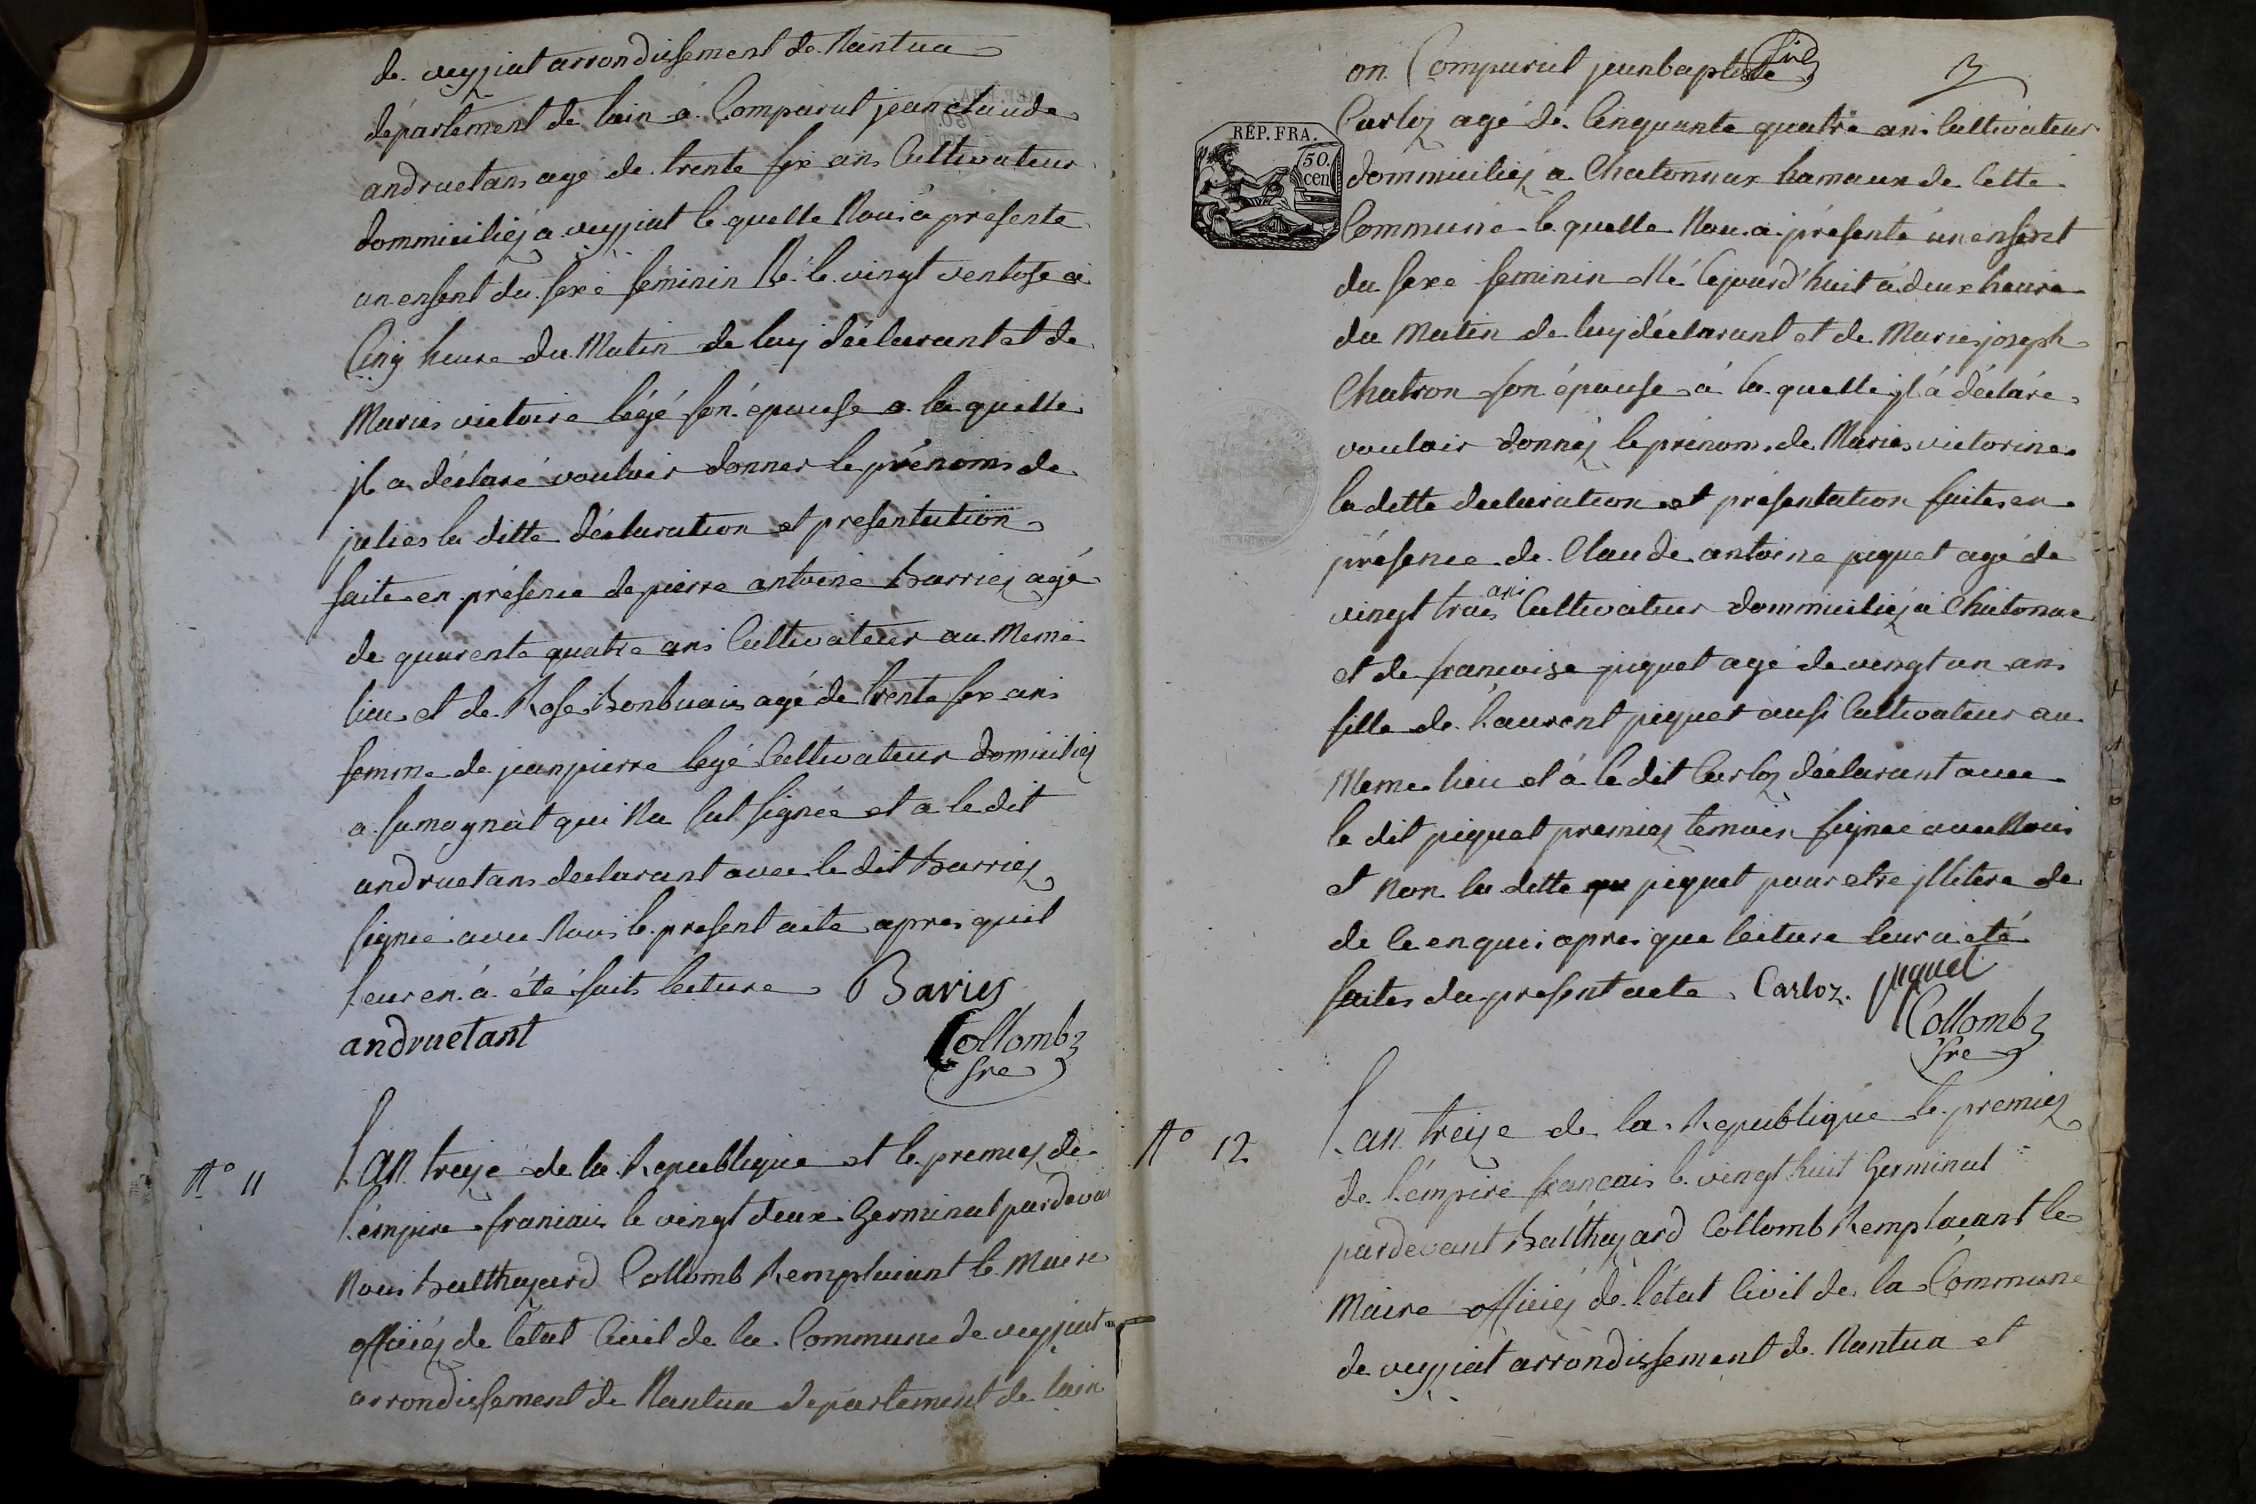 de veyziat arrondissement de Nantua
département de lain à Comparut jean claude
andruetans age de trente six ans Cultivateur
dommiciliéz a veyziat le quelle Nous à présenté
un enfent du sexe feminin Né le vingt ventose a
Cinq heure du Matin de luy déclarant et de
Marie victoire légé son épouse a la quelle
jl a déclaré vouloir donner le prénoms de
julies la ditte déclaration et presentation
faite en présence de pierre antoine Barriez agé
de quarente quatre ans Cultivateur au Meme
lieu et de Rose Bonbuais agé de trente six ans
femme de jean pierre legé Cultivateur domiciliez
a samognat qui Na sut signée et a le dit
andruetans declarant avec le dit Barriez
signée avec Nous le present acte apres quil
leur en à été faits lecture Bariez
andruetant Collomb
N° 11
Lan treize de la Republique et le premiez de
l'émpire franiais le vingt deux Germinal pardevan
Nous Balthazard Collomb Remplaciant le Maire
officiéz de létat Civil de la Commune de veyziat
arrondissement de Nantua département de lain
3
on Comparut jeanbaptiste
Carloz agé de Cinquante quatre ans Cultivateur
REP. FRA.
50. cen
dommiciliez a Chatonnax hamaux de Cette
Commune le quelle Nou a présenté un enfent
du sexe feminin Né Cejourd'huit à deux heure
du Matin de luy déclarant et de Marie joseph
Chatron son épouse à la quelle jl à déclaré
voulair donnéz le prénom de Marie victorine
la ditte declaration et présentation faites en
présence de Claude antoine piquet agé de
vingt trois ans Cultivateur dommiciliéz à Chatonax
et de francoise piquet agé de vingt un ans
fille de Laurent piquet ausi Cultivateur au
Meme lieu et à le dit Carloz déclarant avec
le dit piquet premiez temoin signée avec Nous
et Non la ditte piquet pour etre jllitere de
de le enquis apres que lecture leur a eté
faites du present acte Carloz. piquet
Collomb
N° 12
Lan treize de la Republique le premiez
de l'émpire francais le vingt huit Germinal
pardevant Balthazard Collomb Remplaçant le
Maire officiéz de l'état Civil de la Commune
de veyziat arrondissement de Nantua et